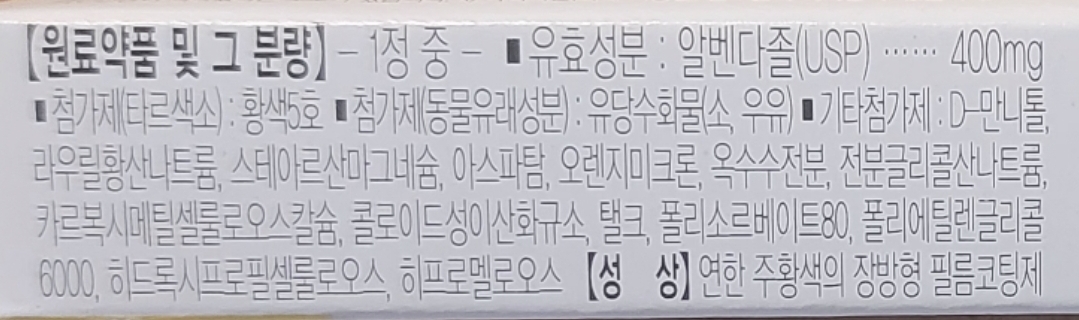 【원료약품 및 그 분량】 - 1정 중 - ▮유효성분 : 알벤다졸(USP) ······ 400mg
▮첨가제(타르색소) : 황색5호 ▮첨가제(동물유래성분) : 유당수화물(소, 우유) ▮기타첨가제 : D-만니톨,
라우릴황산나트륨, 스테아르산마그네슘, 아스파탐, 오렌지미크론, 옥수수전분, 전분글리콜산나트륨,
카르복시메틸셀룰로오스칼슘, 콜로이드성이산화규소, 탤크, 폴리소르베이트80, 폴리에틸렌글리콜
6000, 히드록시프로필셀룰로오스, 히프로멜로오스 【성 상】 연한 주황색의 장방형 필름코팅제